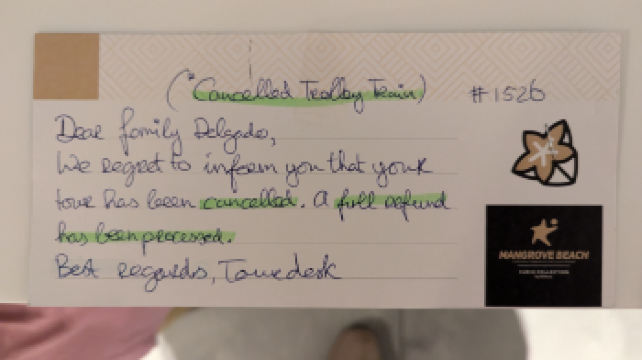 (*Cancelled Trolley Train) #1526
Dear family Delgado,
We regret to inform you that your
tour has been cancelled. A full refund
has been processed.
Best regards, Tourdesk
MANGROVE BEACH